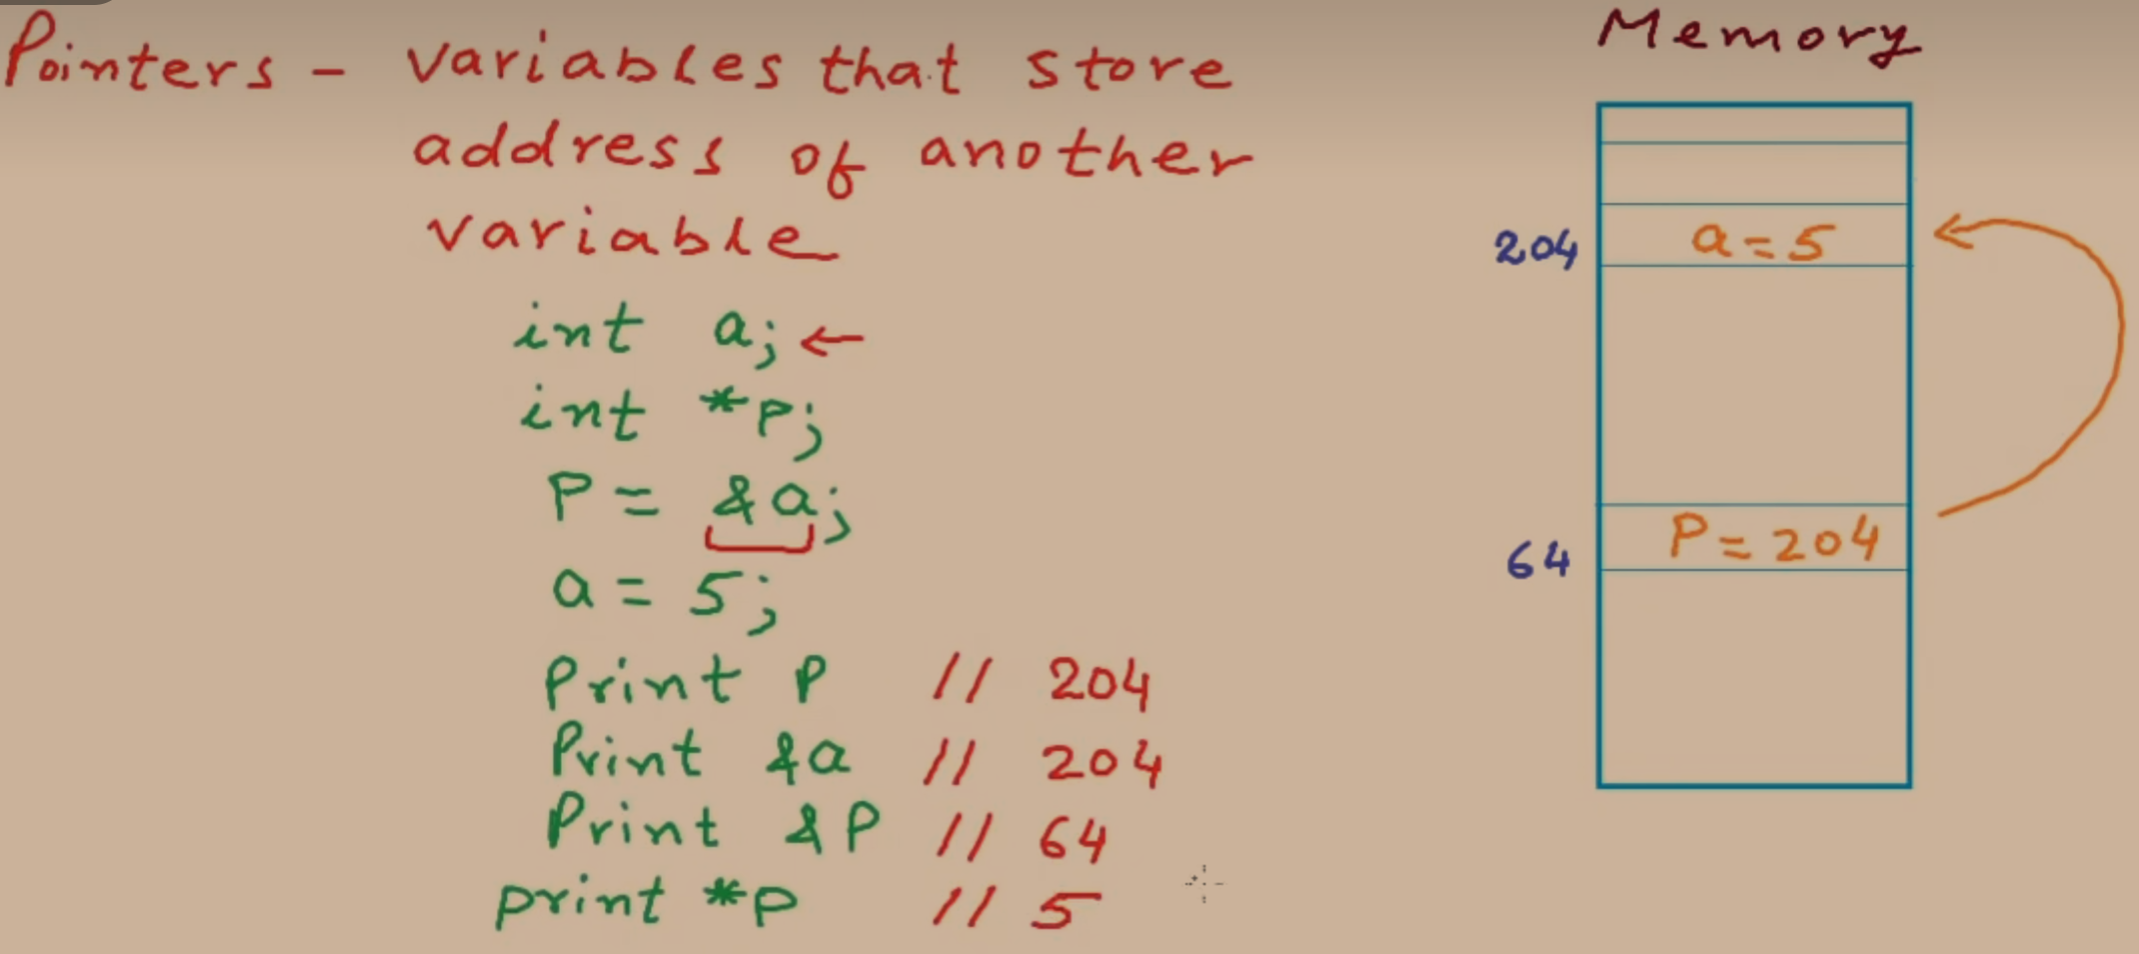 Pointers - variables that store
address of another
variable
int a; ←
int *p;
P = &a;
a = 5;
Print P // 204
Print &a // 204
Print &P // 64
print *p // 5
Memory
204 a = 5
64 P = 204